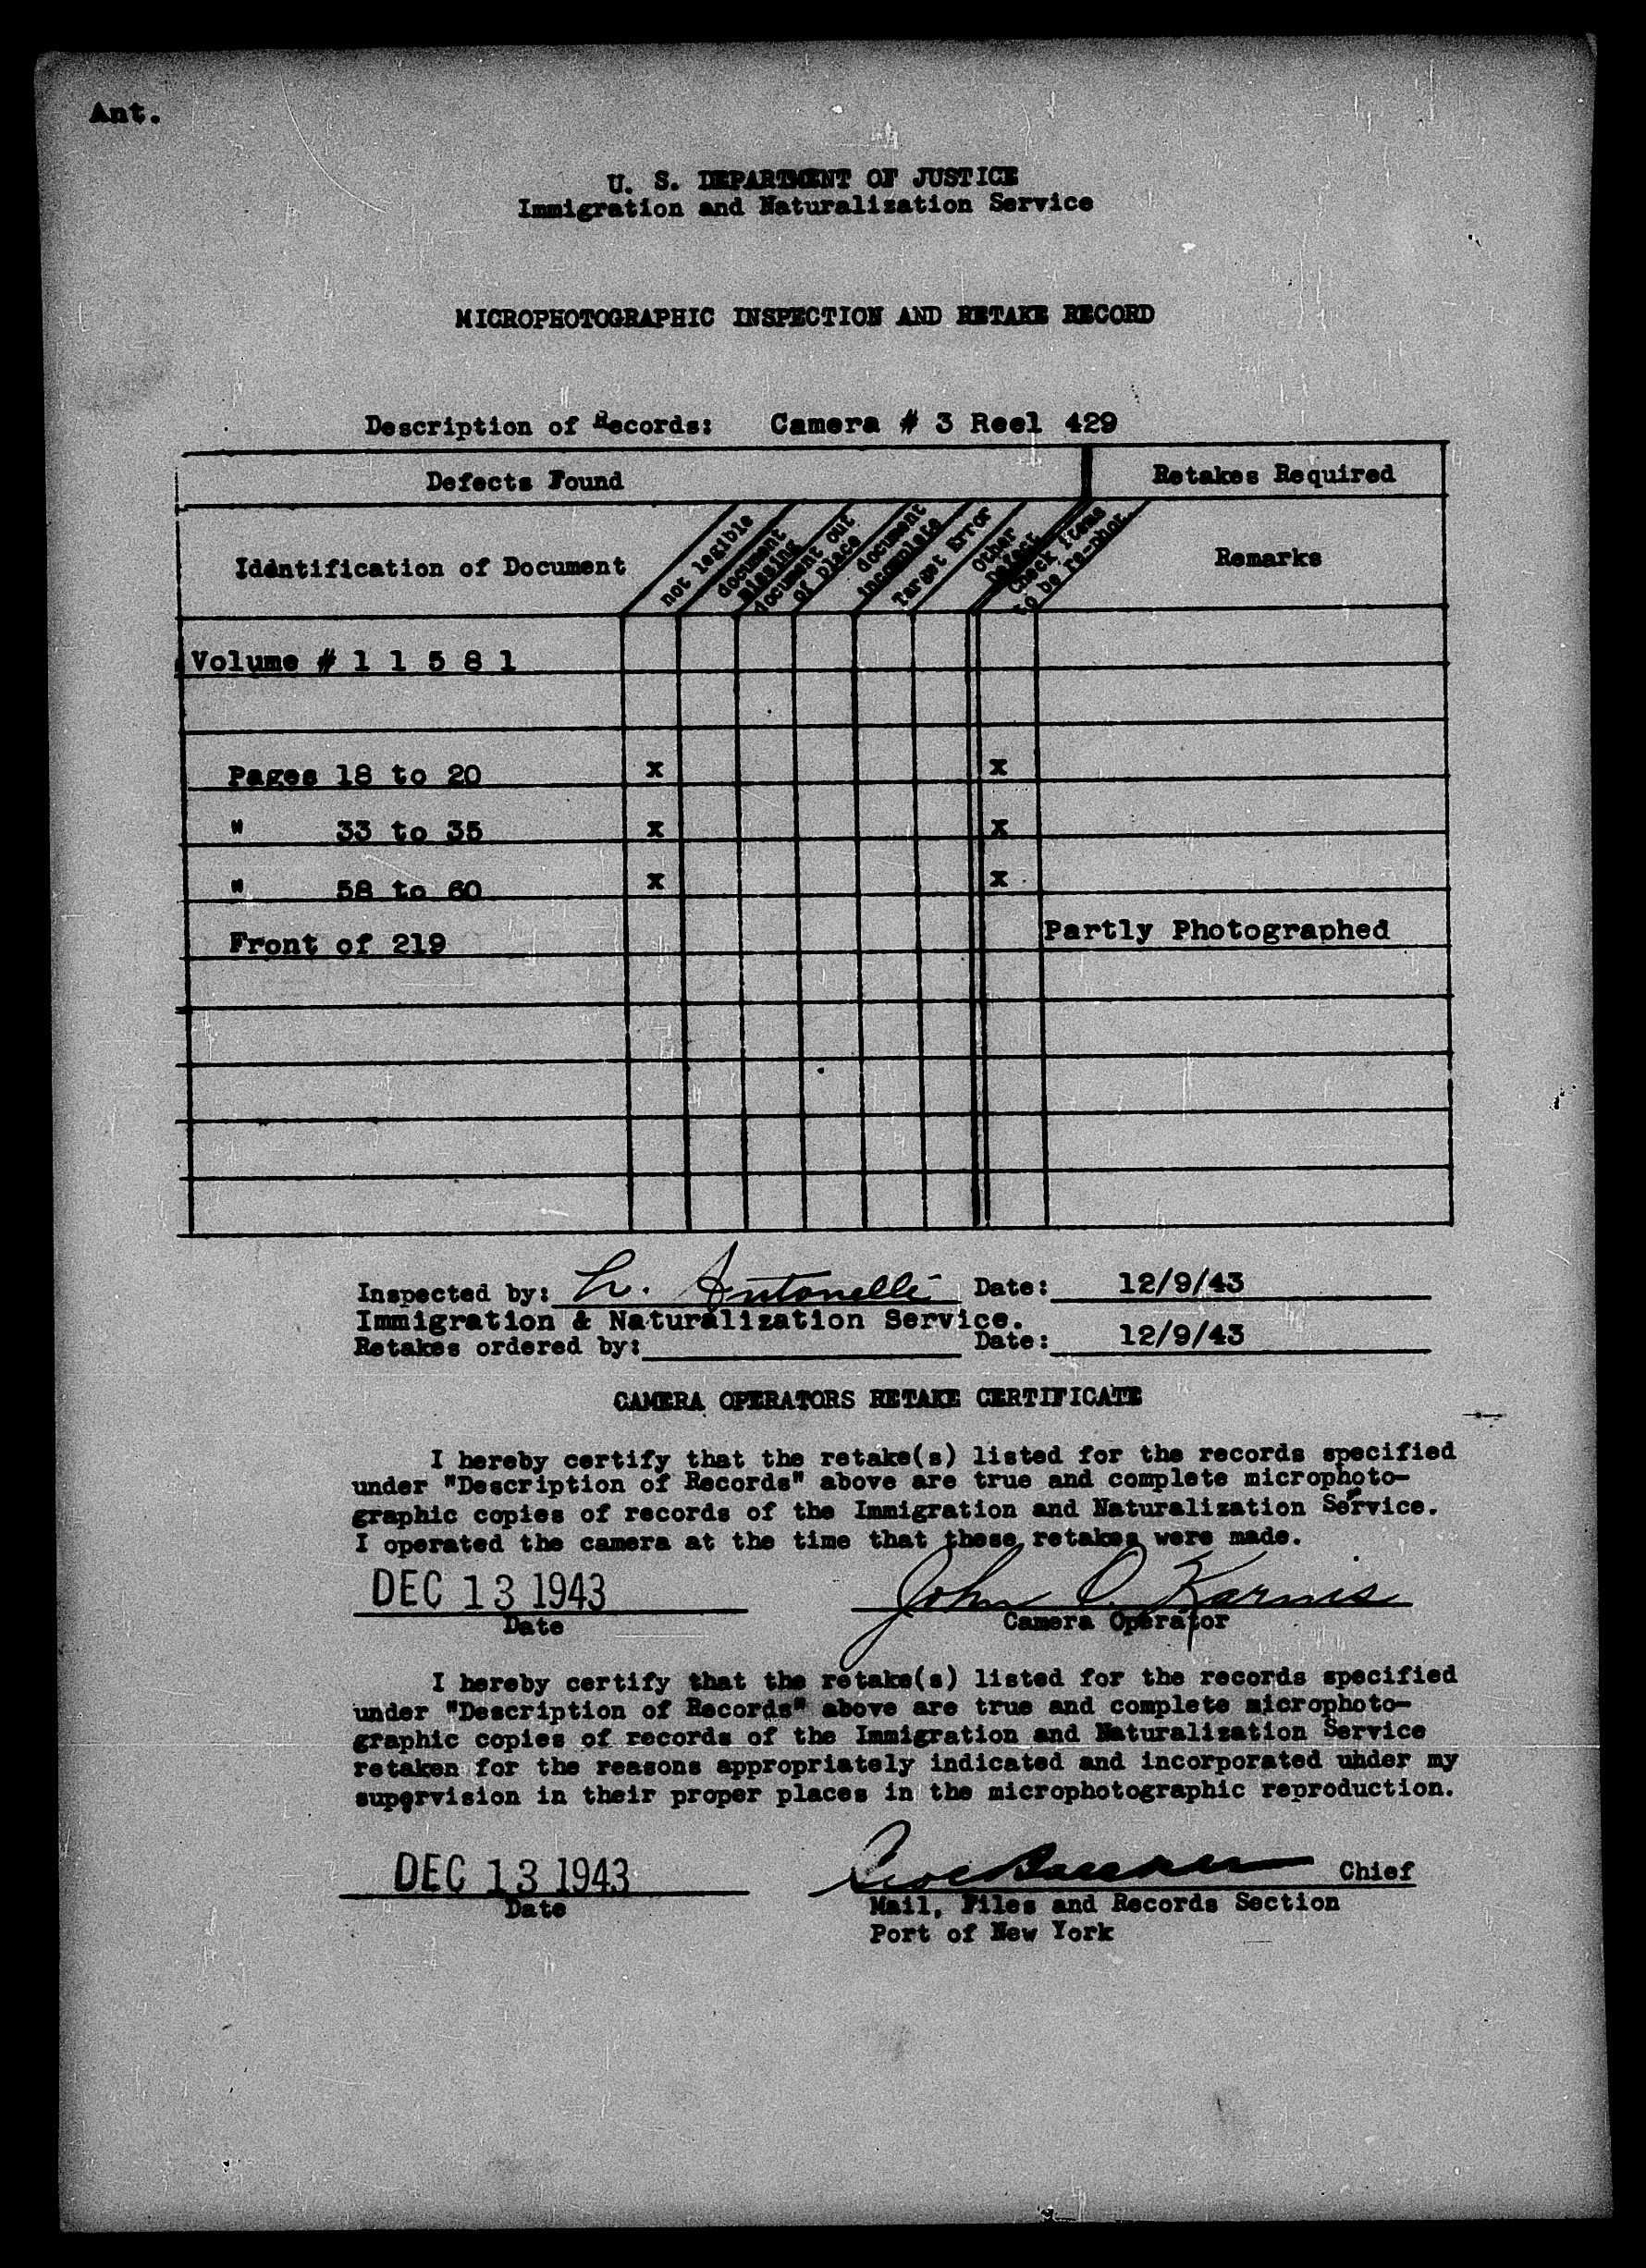 Ant.
U. S. DEPARTMENT OF JUSTICE
Immigration and Naturalization Service
MICROPHOTOGRAPHIC INSPECTION AND RETAKE RECORD
Description of Records: Camera # 3 Reel 429
Defects Found Retakes Required
Identification of Document
not legible
document
missing
document out
of place
document
incomplete
Target Error
Other
Defect
Check items
to be re-phot.
Remarks
Volume # 1 1 5 8 1
Pages 18 to 20 x x
" 33 to 35 x x
" 58 to 60 x x
Front of 219 Partly Photographed
Inspected by: L. Antonelli Date: 12/9/43
Immigration & Naturalization Service.
Retakes ordered by: Date: 12/9/43
CAMERA OPERATORS RETAKE CERTIFICATE
I hereby certify that the retake(s) listed for the records specified
under "Description of Records" above are true and complete microphoto-
graphic copies of records of the Immigration and Naturalization Service.
I operated the camera at the time that these retakes were made.
DEC 13 1943 John Karnis
Date Camera Operator
I hereby certify that the retake(s) listed for the records specified
under "Description of Records" above are true and complete microphoto-
graphic copies of records of the Immigration and Naturalization Service
retaken for the reasons appropriately indicated and incorporated under my
supervision in their proper places in the microphotographic reproduction.
DEC 13 1943 Chief
Date Mail, Files and Records Section
Port of New York